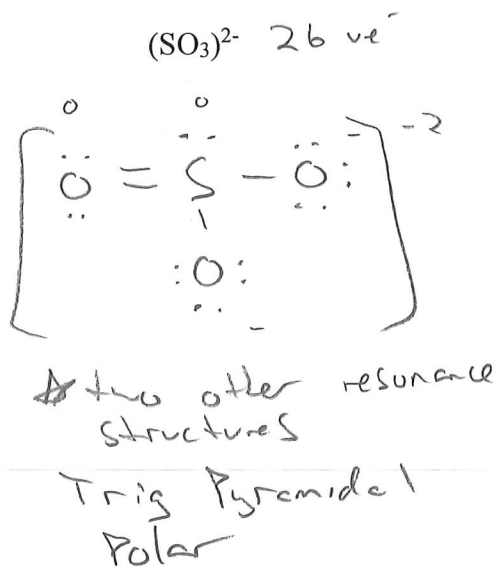 (SO₃)²⁻ 26 ve⁻
0 0
[Ö = S̈ – Ö:]⁻²
:O:
–
two other resonance
structures
Trig Pyramidal
Polar